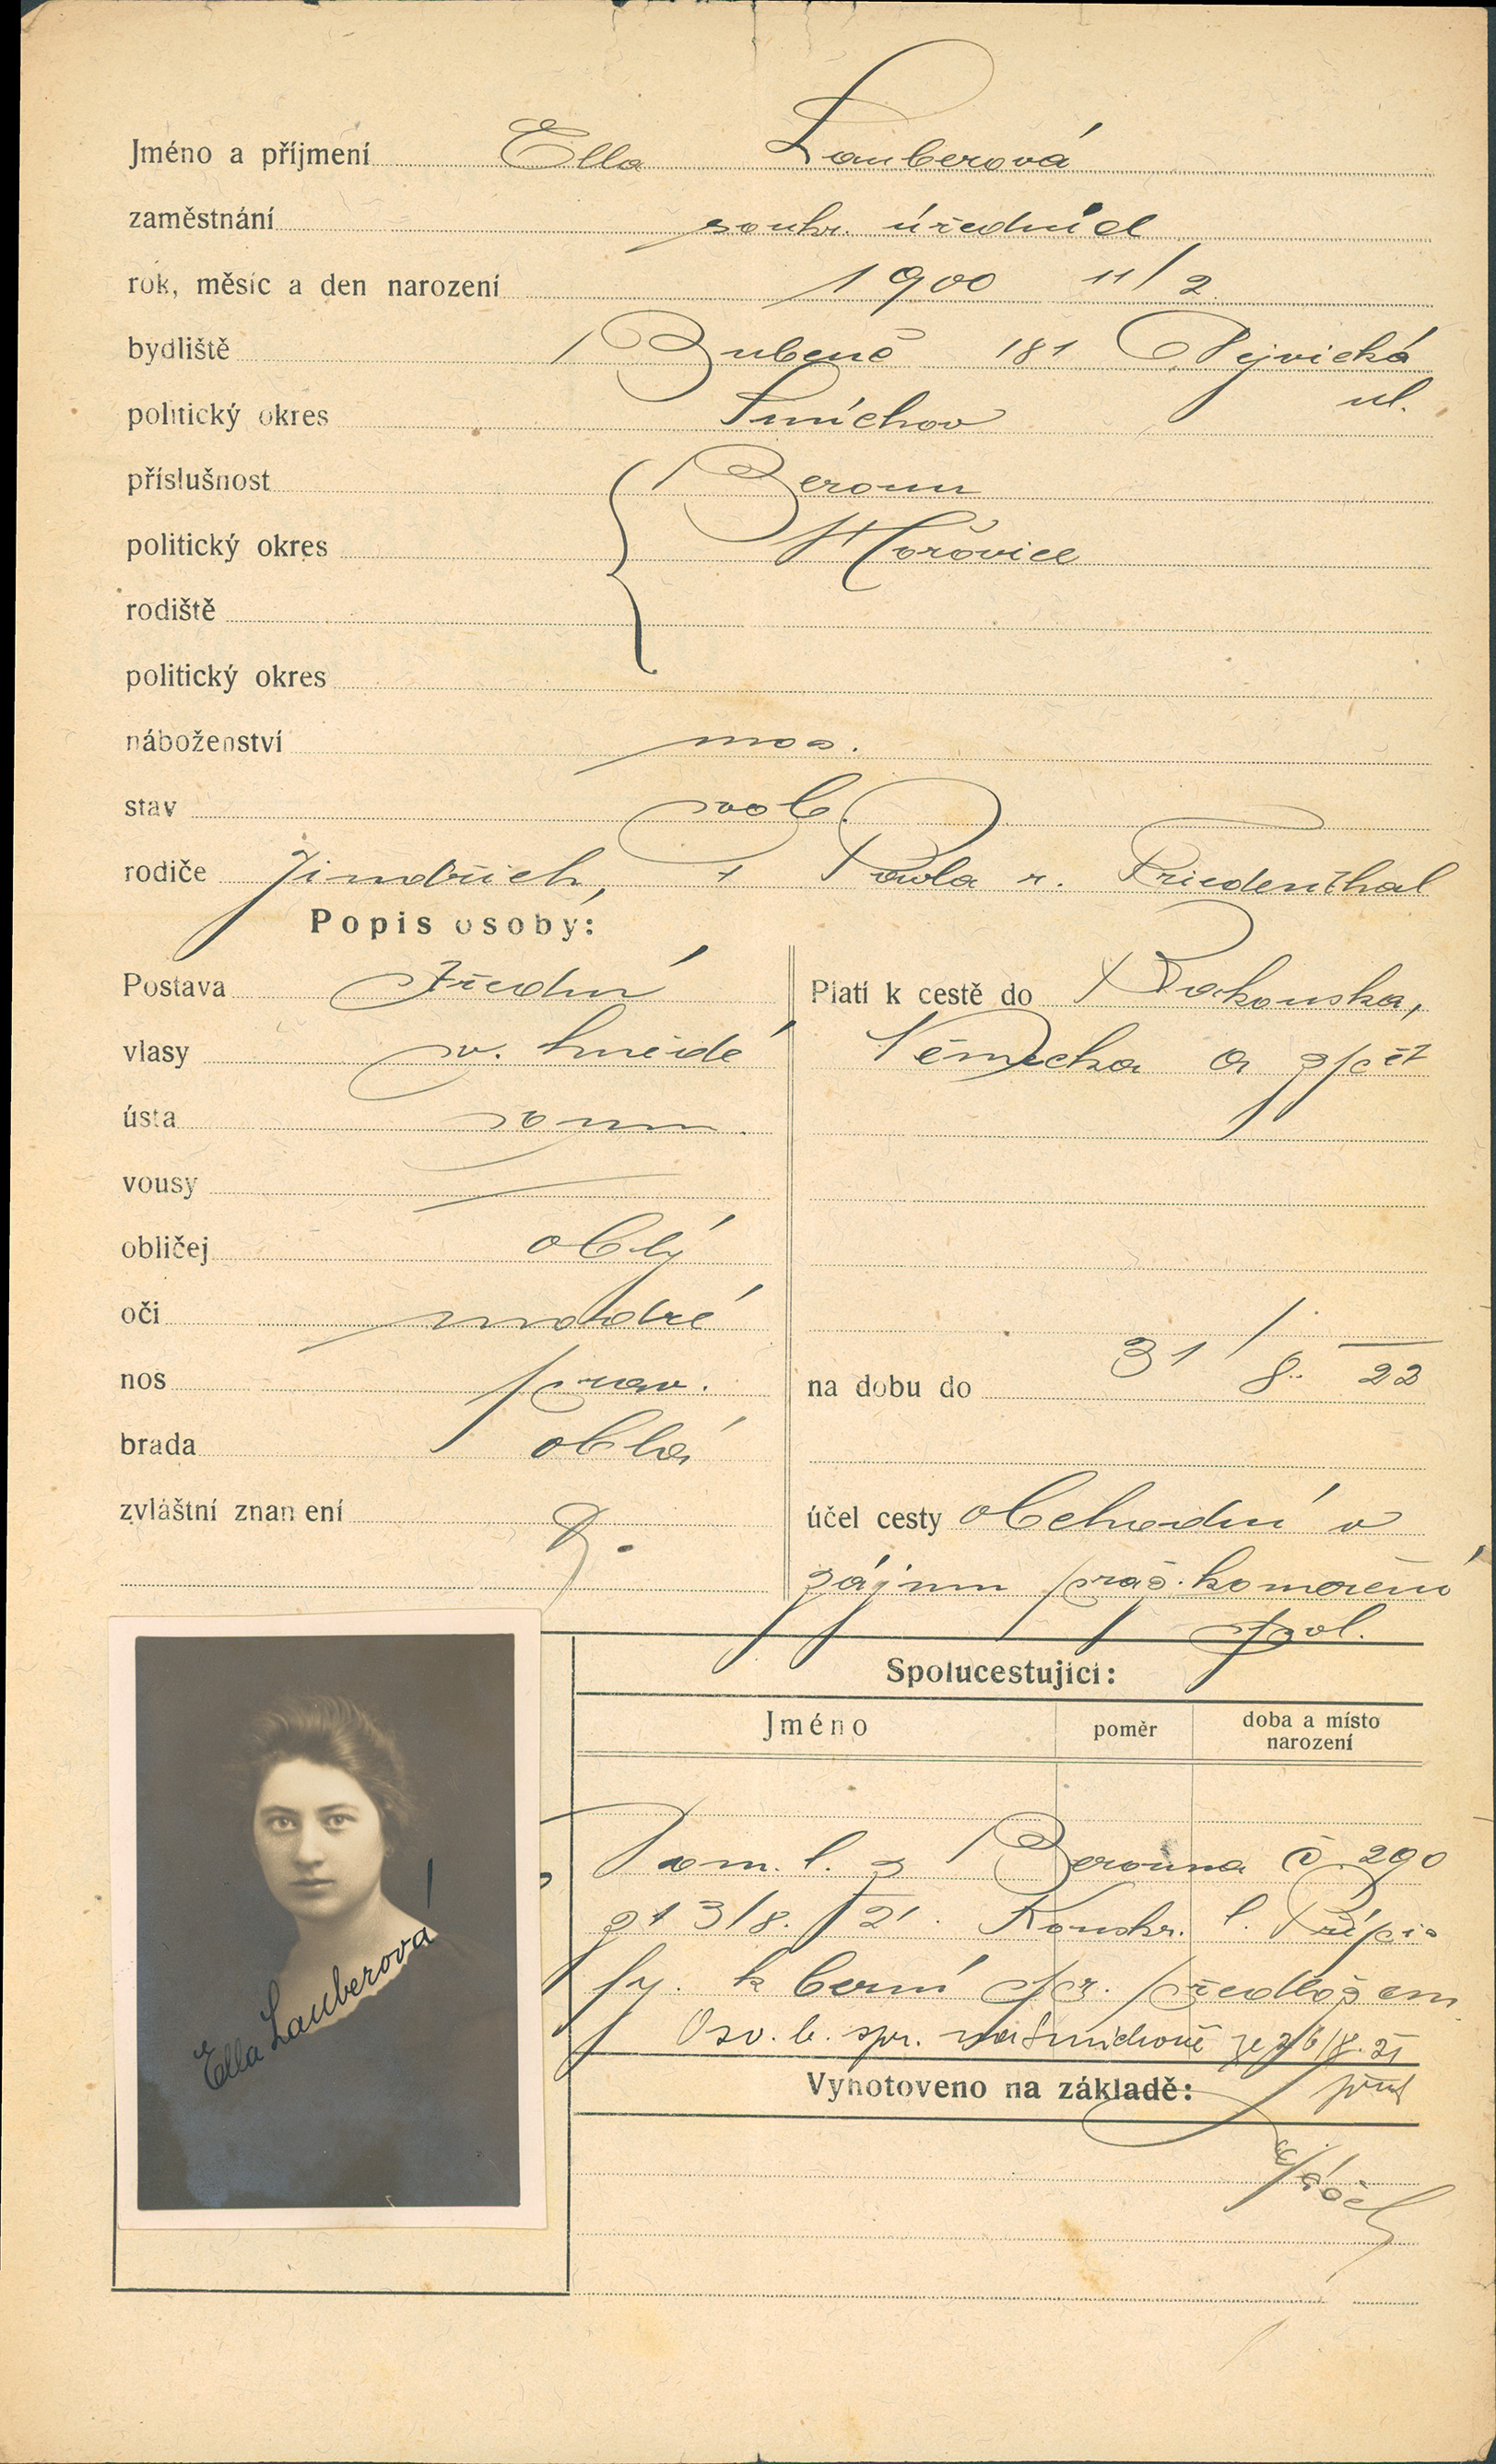 Jméno a příjmení Ella Lauberová
zaměstnání soukr. úřednice
rok, měsíc a den narození 1900 11/2
bydliště Bubeneč 181 Dejvická
ul.
politický okres Smíchov
příslušnost Beroun
politický okres Hořovice
rodiště
politický okres
náboženství mos.
stav svob.
rodiče Jindřich, + Pavla r. Friedenthal
Popis osoby:
Postava střední
vlasy sv. hnědé
ústa soum.
vousy
obličej oblý
oči modré
nos prav.
brada oblá
zvláštní znamení
Platí k cestě do Rakouska,
Německa a zpět
na dobu do 31/8. 22
účel cesty obchodní v
zájmu praž. komerční
spol.
Spolucestující:
Jméno poměr doba a místo narození
Dom. l. z Berouna č. 290
z 13/8. 21. Konskr. l. Přípis
fy. k berní spr. předložen
Osv. b. spr. na Smíchově ze 26/8. 21
Vyhotoveno na základě:
Ella Lauberová